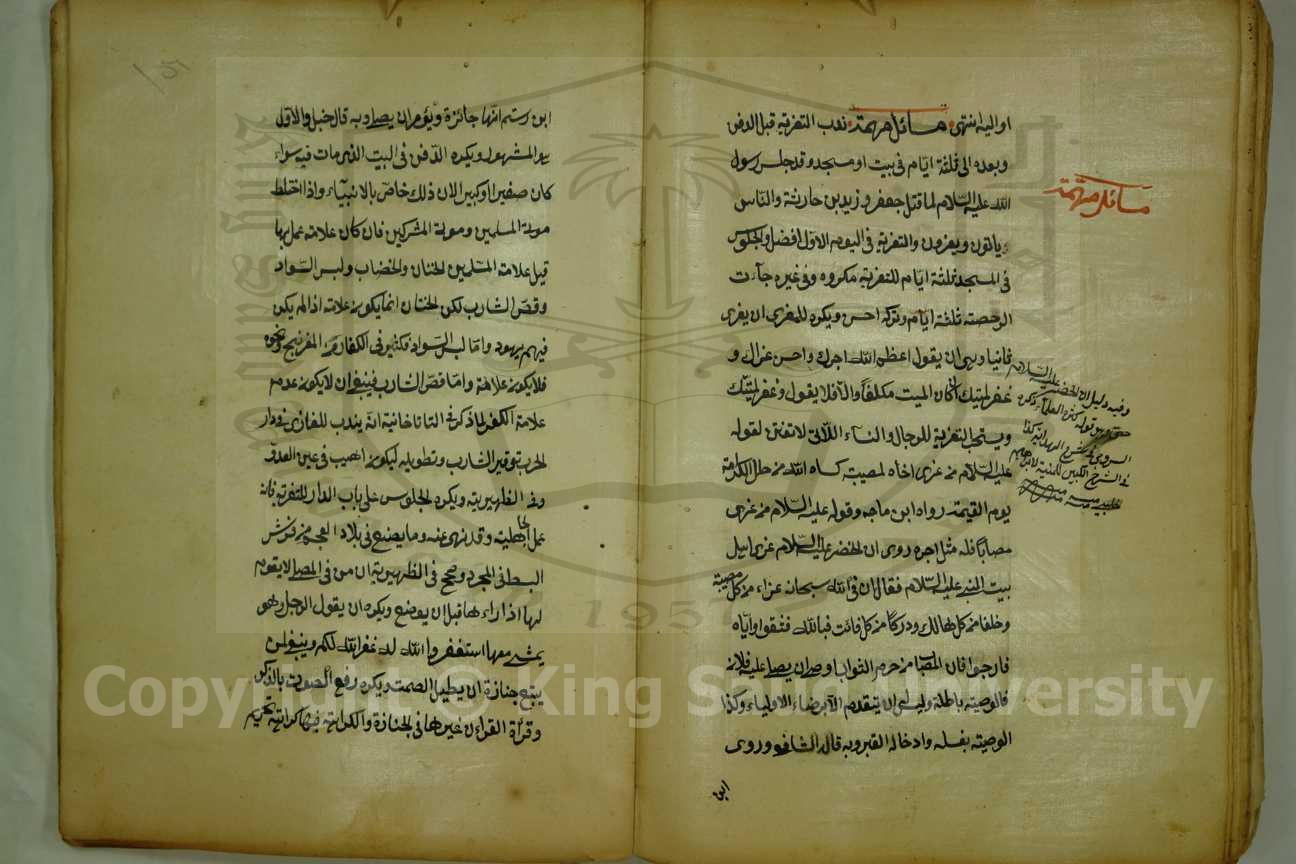 او اليه انتهى مسائل مهمة ندب التعزية قبل الدفن
وبعده الى ثلثة ايام فى بيت او مسجد وقد جلس رسول
الله عليه السلام لما قتل جعفر وزيد بن حارثة والناس
يأتون ويعزون والتعزية فى اليوم الاول افضل والجلوس
فى المسجد ثلثة ايام للتعزية مكروه وفى غيره جاءت
الرخصة ثلثة ايام وتركه احسن ويكره للمعزى ان يعزى
ثانيا وهى ان يقول اعظم الله اجرك واحسن عزاك و
غفر لميتك ان كان الميت مكلفا والا فلا يقول وغفر لميتك
ويستحب التعزية للرجال والنساء اللاتى لا تفتن لقوله
عليه السلام من عزى اخاه لمصيبة كساه الله من حلل الكرامة
يوم القيمة رواه ابن ماجه وقوله عليه السلام من عزى
مصابا فله مثل اجره روى ان الخضر عليه السلام عزى اهل
بيت النبى عليه السلام فقال ان فى الله سبحانه عزاء من كل مصيبة
وخلفا من كل هالك ودركا من كل فائت فبالله فثقوا واياه
فارجوا فان المصاب من حرم الثواب اوصى ان يصلى عليه فلان
فالوصية باطلة وليس له ان يتقدم الا برضاء الاولياء وكذا
الوصية بغسله وادخاله القبر وبه قال الشافعى وروى
ابن
مسائل مهمة
وفيه دليل ان الخضر عليه السلام
هو قول كثير العلماء ذكره
السروجى فى شرح الهداية كذا
فى الشرح الكبير للمنية لابراهيم
الحلبى
ابن رستم انها جائزة ويؤمر ان يصلى وبه قال حنبل والاول
هو المشهور ويكره الدفن فى البيت الذى مات فيه سواء
كان صغيرا او كبيرا لان ذلك خاص بالانبياء واذا اختلط
موتى المسلمين وموتى المشركين فان كان علامة عمل بها
قيل علامة المسلمين الختان والخضاب ولبس السواد
وقص الشارب لكن الختان انما يكون علامة اذا لم يكن
فيهم يهود واما لبس السواد فكثير فى الكفار من الافرنج ونحوه
فلا يكون علامة واما قص الشارب فينبغى ان لا يكون عدمه
علامة الكفر لما ذكر فى التاتاخانية انه يندب للغازى فى دار
الحرب توفير الشارب وتطويله ليكون اهيب فى عين العدو
وفى الظهيرية ويكره الجلوس على باب الدار للتعزية فانه
عمل الجاهلية وقد نهى عنه وما يصنع فى بلاد العجم من فرش
البسط فى المجرد وصح فى الظهيرية ان من فى المصلى لا يقوم
لها اذا راءها قبل ان يوضع ويكره ان يقول الرجل وهو
يمشى معها استغفروا الله له غفر الله لكم وينبغى لمن
يتبع جنازة ان يطيل الصمت ويكره رفع الصوت بالذكر
وقرأة القران غيرها فى الجنازة والكراهة فيها كراهة تحريم
Copyright © King Saud University
1957